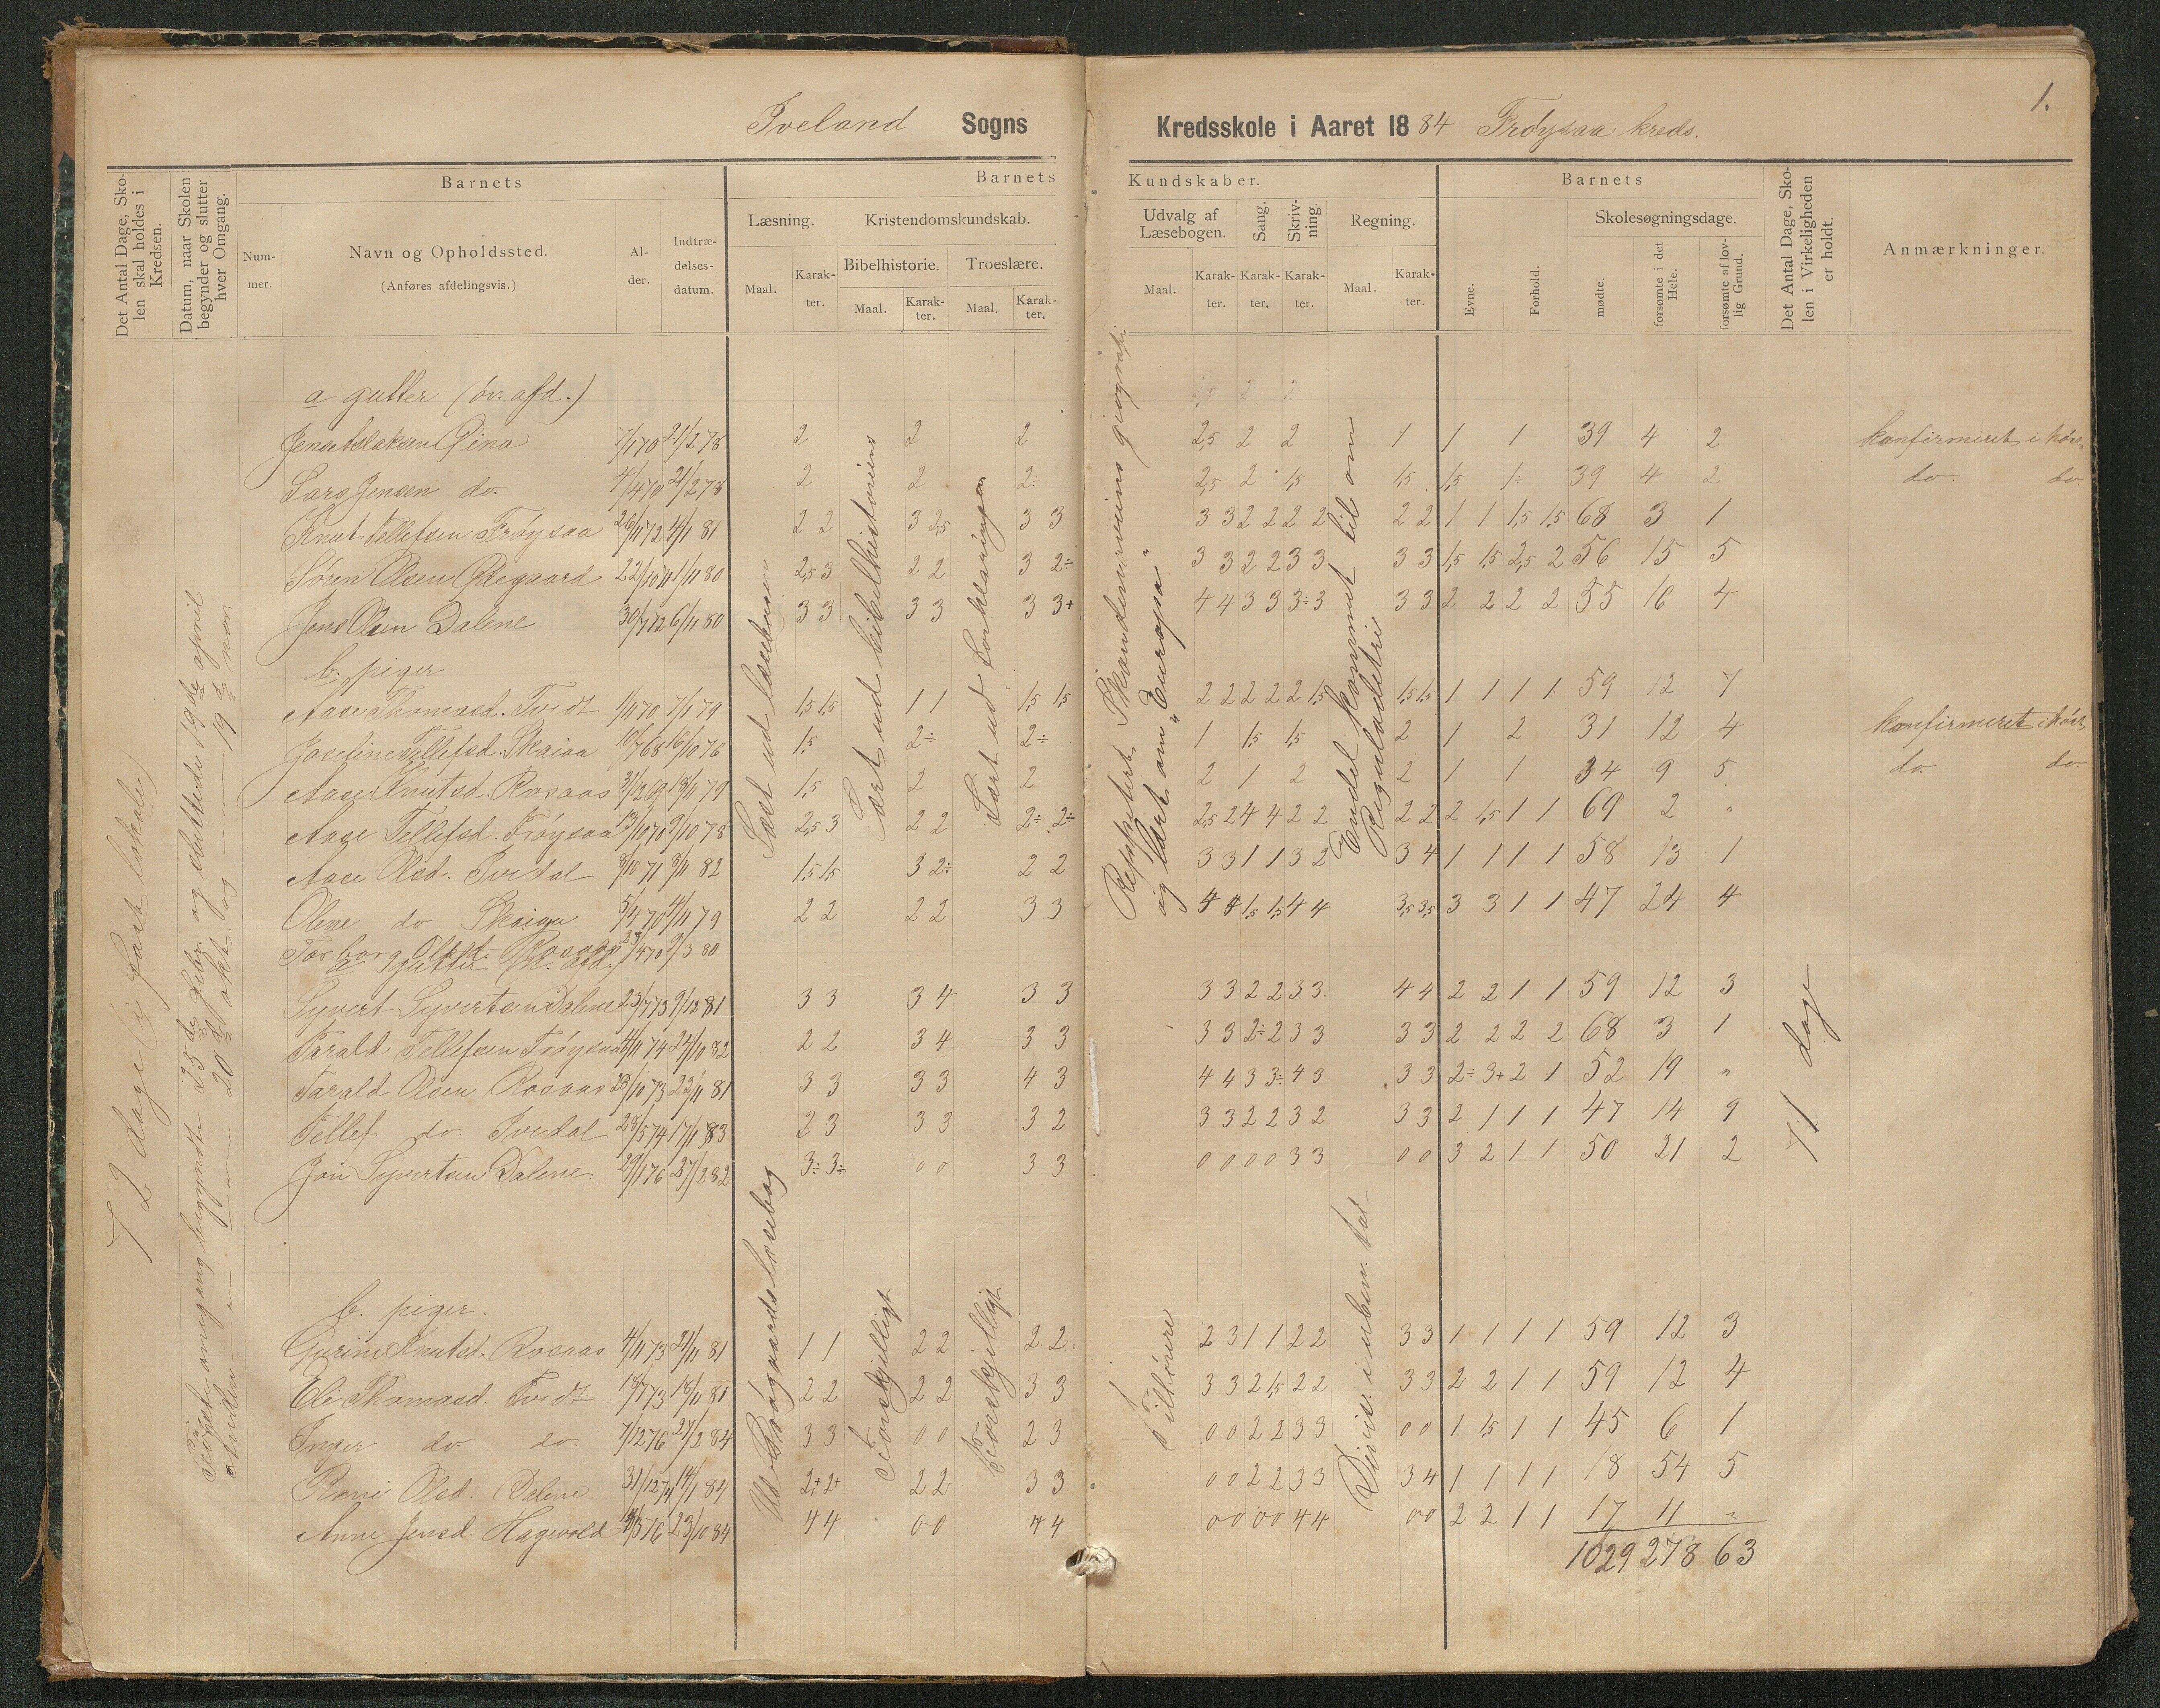 Iveland Sogns Kredsskole i Aaret 1884 Frøysaa kreds.
1.
Det Antal Dage, Skolen skal holdes i Kredsen.
Datum, naar Skolen begynder og slutter hver Omgang.
Barnets
Nummer.
Navn og Opholdssted.
(Anføres afdelingsvis.)
Alder.
Indtrædelsesdatum.
Barnets Kundskaber.
Læsning.
Maal.
Karakter.
Kristendomskundskab.
Bibelhistorie.
Maal.
Karakter.
Troeslære.
Maal.
Karakter.
Udvalg af Læsebogen.
Maal.
Karakter.
Sang.
Karakter.
Skrivning.
Karakter.
Regning.
Maal.
Karakter.
Barnets
Evne.
Forhold.
Skolesøgningsdage.
mødte.
forsømte i det Hele.
forsømte af lovlig Grund.
Det Antal Dage, Skolen i Virkeligheden er holdt.
Anmærkninger.
72 dage (i fast lokale)
Første omgang begyndte 25de febr. og sluttede 19de april
Anden — " — — " — 20de okt. og — " — 19de nov.
Læst ud læsebogen
Lært ud bibelhistorien
Lært ud forklaringen
Reppetert Skandinaviens geografi
og lært om "Europa"
Endel kommet til om
Reguladetri
71 dage
a gutter (øv. afd.)
Jens Aslaksen Gina 7/1 70 21/2 78 2 2 2 2,5 2 2 1 1 1 39 4 2 konfirmeret i høst
Lars Jensen do. 4/4 70 21/2 78 2 2 2÷ 2,5 2 1,5 1,5 1,5 1÷ 39 4 2 do. do.
Knut Tellefsen Frøysaa 26/11 72 4/11 81 2 2 3 2,5 3 3 3 3 2 2 2 2 2 2 1 1 1,5 1,5 68 3 1
Søren Olsen Ødegaard 22/10 71 1/11 80 2,5 3 2 2 3 2÷ 3 3 2 2 3 3 3 3 1,5 1,5 2,5 2 56 15 5
Jens Olsen Dalene 30/7 72 6/11 80 3 3 3 3 3 3+ 4 4 3 3 3÷ 3 3 3 2 2 2 2 55 16 4
b. piger
Aase Thomasd. Tvedt 1/11 70 7/1 79 1,5 1,5 1 1 1,5 1,5 2 2 2 2 2 1,5 1,5 1,5 1 1 1 1 59 12 7
Josefine Tellefsd. Skaiaa 10/7 68 16/10 76 1,5 2÷ 2÷ 1 1,5 1,5 2 1 2 31 12 4 konfirmeret i høst
Aase Knutsd. Rosaas 31/12 69 18/11 79 1,5 2 2 2 1 2 2 1 1 34 9 5 do. do.
Aase Tellefsd. Frøysaa 13/10 70 9/10 78 2,5 3 2 2 2÷ 2÷ 2,5 2 4 4 2 2 2 2 2 1,5 1 1 69 2 "
Aase Olsd. Ivedal 8/10 71 8/11 82 1,5 1,5 3 2÷ 2 2 3 3 1 1 3 2 3 4 1 1 1 1 58 13 1
Olene do Skaiaa 5/4 70 4/11 79 2 2 2 2 3 3 4 4 1,5 1,5 4 4 3,5 3,5 3 3 1 1 47 24 4
Torborg Olsd. Rosaas 23/4 70 9/3 80
a. Gutter (n. afd.)
Syvert Syvertsen Dalene 23/7 73 9/12 81 3 3 3 4 3 3 3 3 2 2 3 3 4 4 2 2 1 1 59 12 3
Tarald Tellefsen Frøysaa 4/11 74 24/10 82 2 2 3 4 3 3 3 3 2÷ 2 3 3 3 3 2 2 2 2 68 3 1
Tarald Olsen Rosaas 28/10 73 22/11 81 3 3 3 3 4 3 4 4 3 3÷ 4 3 3 3 2÷ 3+ 2 1 52 19 "
Tellef do. Ivedal 28/5 74 17/1 83 2 3 3 3 3 2 3 3 2 2 3 2 3 3 2 1 1 1 47 14 9
Jon Syvertsen Dalene 29/1 76 27/2 82 3÷ 3÷ 0 0 3 3 0 0 0 0 3 3 0 0 3 2 1 1 50 21 2
Ud Bøgvaards Læsebog
Forskjelligt
Forskjelligt
Tilhørere
Divis. i uben. tal
b. piger.
Gurine Knutsd. Rosaas 4/11 73 21/11 81 1 1 2 2 2 2 2 3 1 1 2 2 3 3 1 1 1 1 59 12 3
Eli Thomasd. Tvedt 18/7 73 18/11 81 2 2 2 2 3 3 3 3 2 1,5 2 2 3 3 2 2 1 1 59 12 4
Inger do do. 7/12 76 27/2 84 3 3 0 0 2 3 0 0 2 2 3 3 0 0 1 1,5 1 1 45 6 1
Olsd. Dalene 31/12 74 14/1 84 2+ 2+ 2 2 3 3 0 0 2 2 3 3 3 4 1 1 1 1 18 54 5
Anne Jensd. Hagevold 14/3 76 23/10 84 4 4 0 0 4 4 0 0 0 0 4 4 0 0 2 2 1 1 17 11 "
1029 278 63